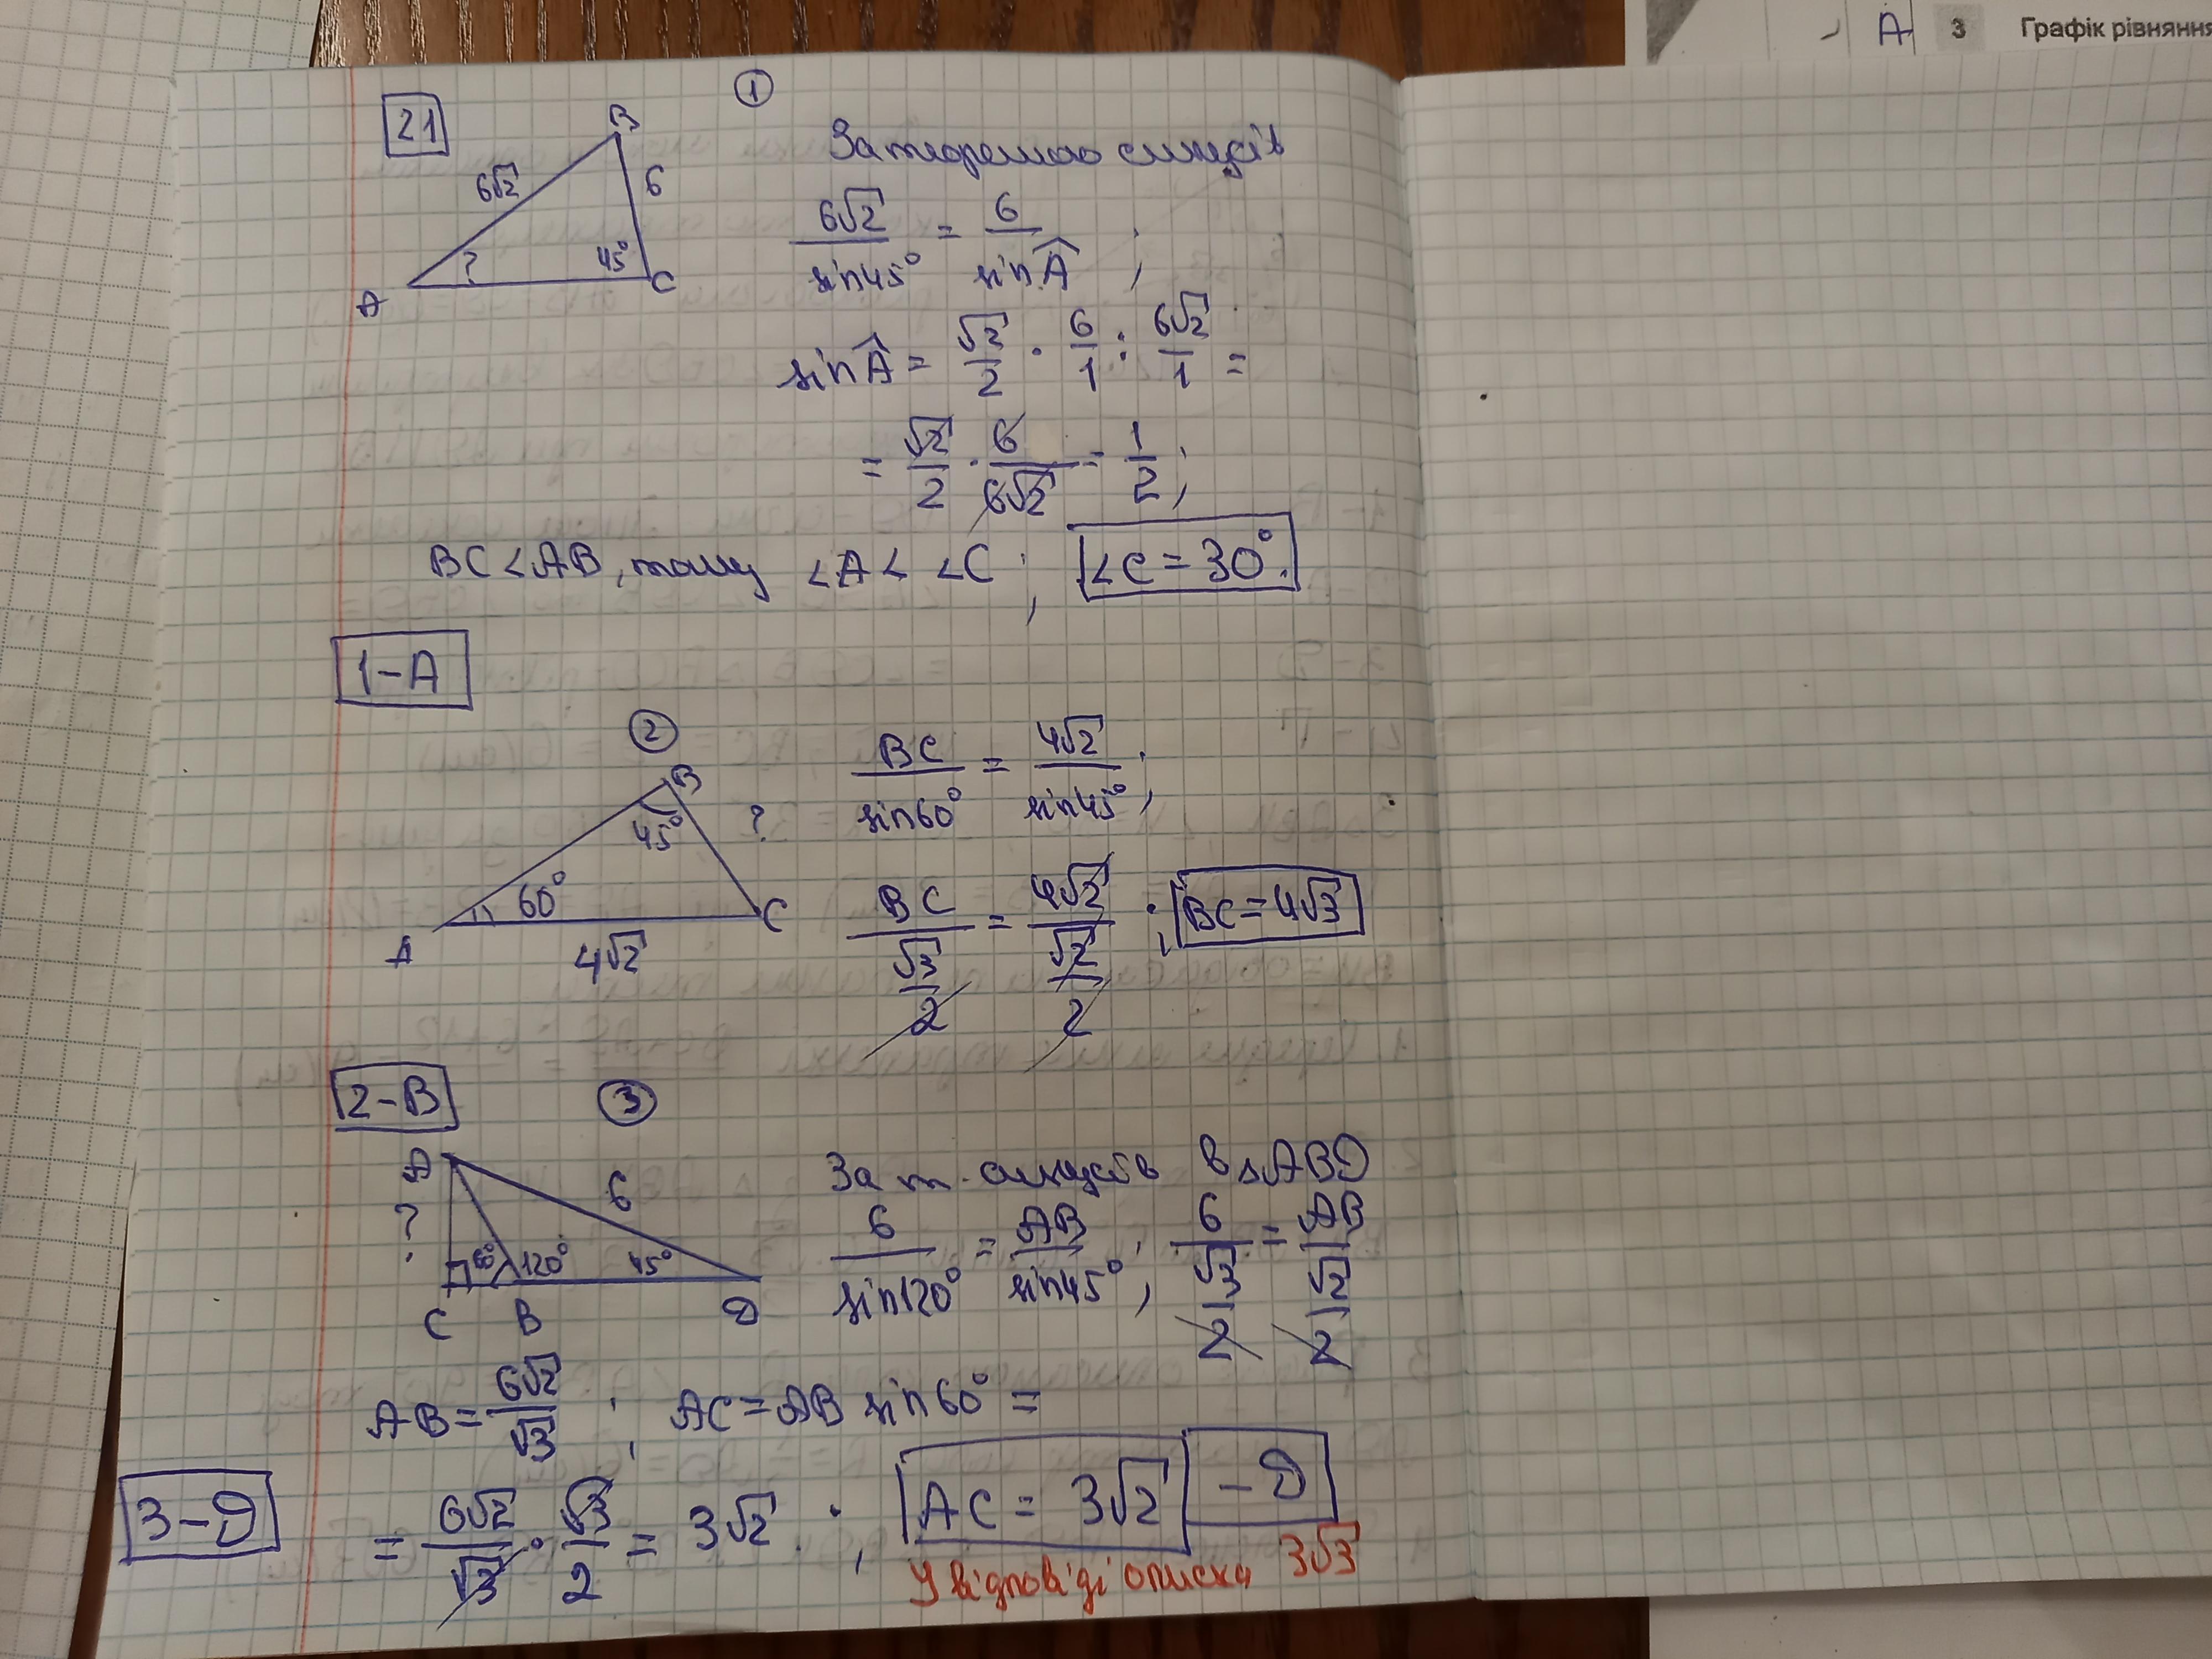 А 3 Графік рівняння
21
1
B
6√2
6
?
45°
A
C
За теоремою синусів
6√2/sin45° = 6/sinÂ ;
sinÂ = √2/2 · 6/1 : 6√2/1 =
= √2/2 · 6/6√2 = 1/2 ;
BC < AB, тому ∠A < ∠C ; ∠C = 30°.
1–А
2
B
45°
?
60°
A
C
4√2
BC/sin60° = 4√2/sin45° ;
BC/(√3/2) = 4√2/(√2/2) ; BC = 4√3
2–В
3
A
6
?
60°
120°
45°
C
B
D
За т. синусів в △ABD
6/sin120° = AB/sin45° ; 6/(√3/2) = AB/(√2/2)
AB = 6√2/√3 ; AC = AB sin60° =
3–Д
= 6√2/√3 · √3/2 = 3√2 ; AC = 3√2 – Д
У відповіді описка 3√3